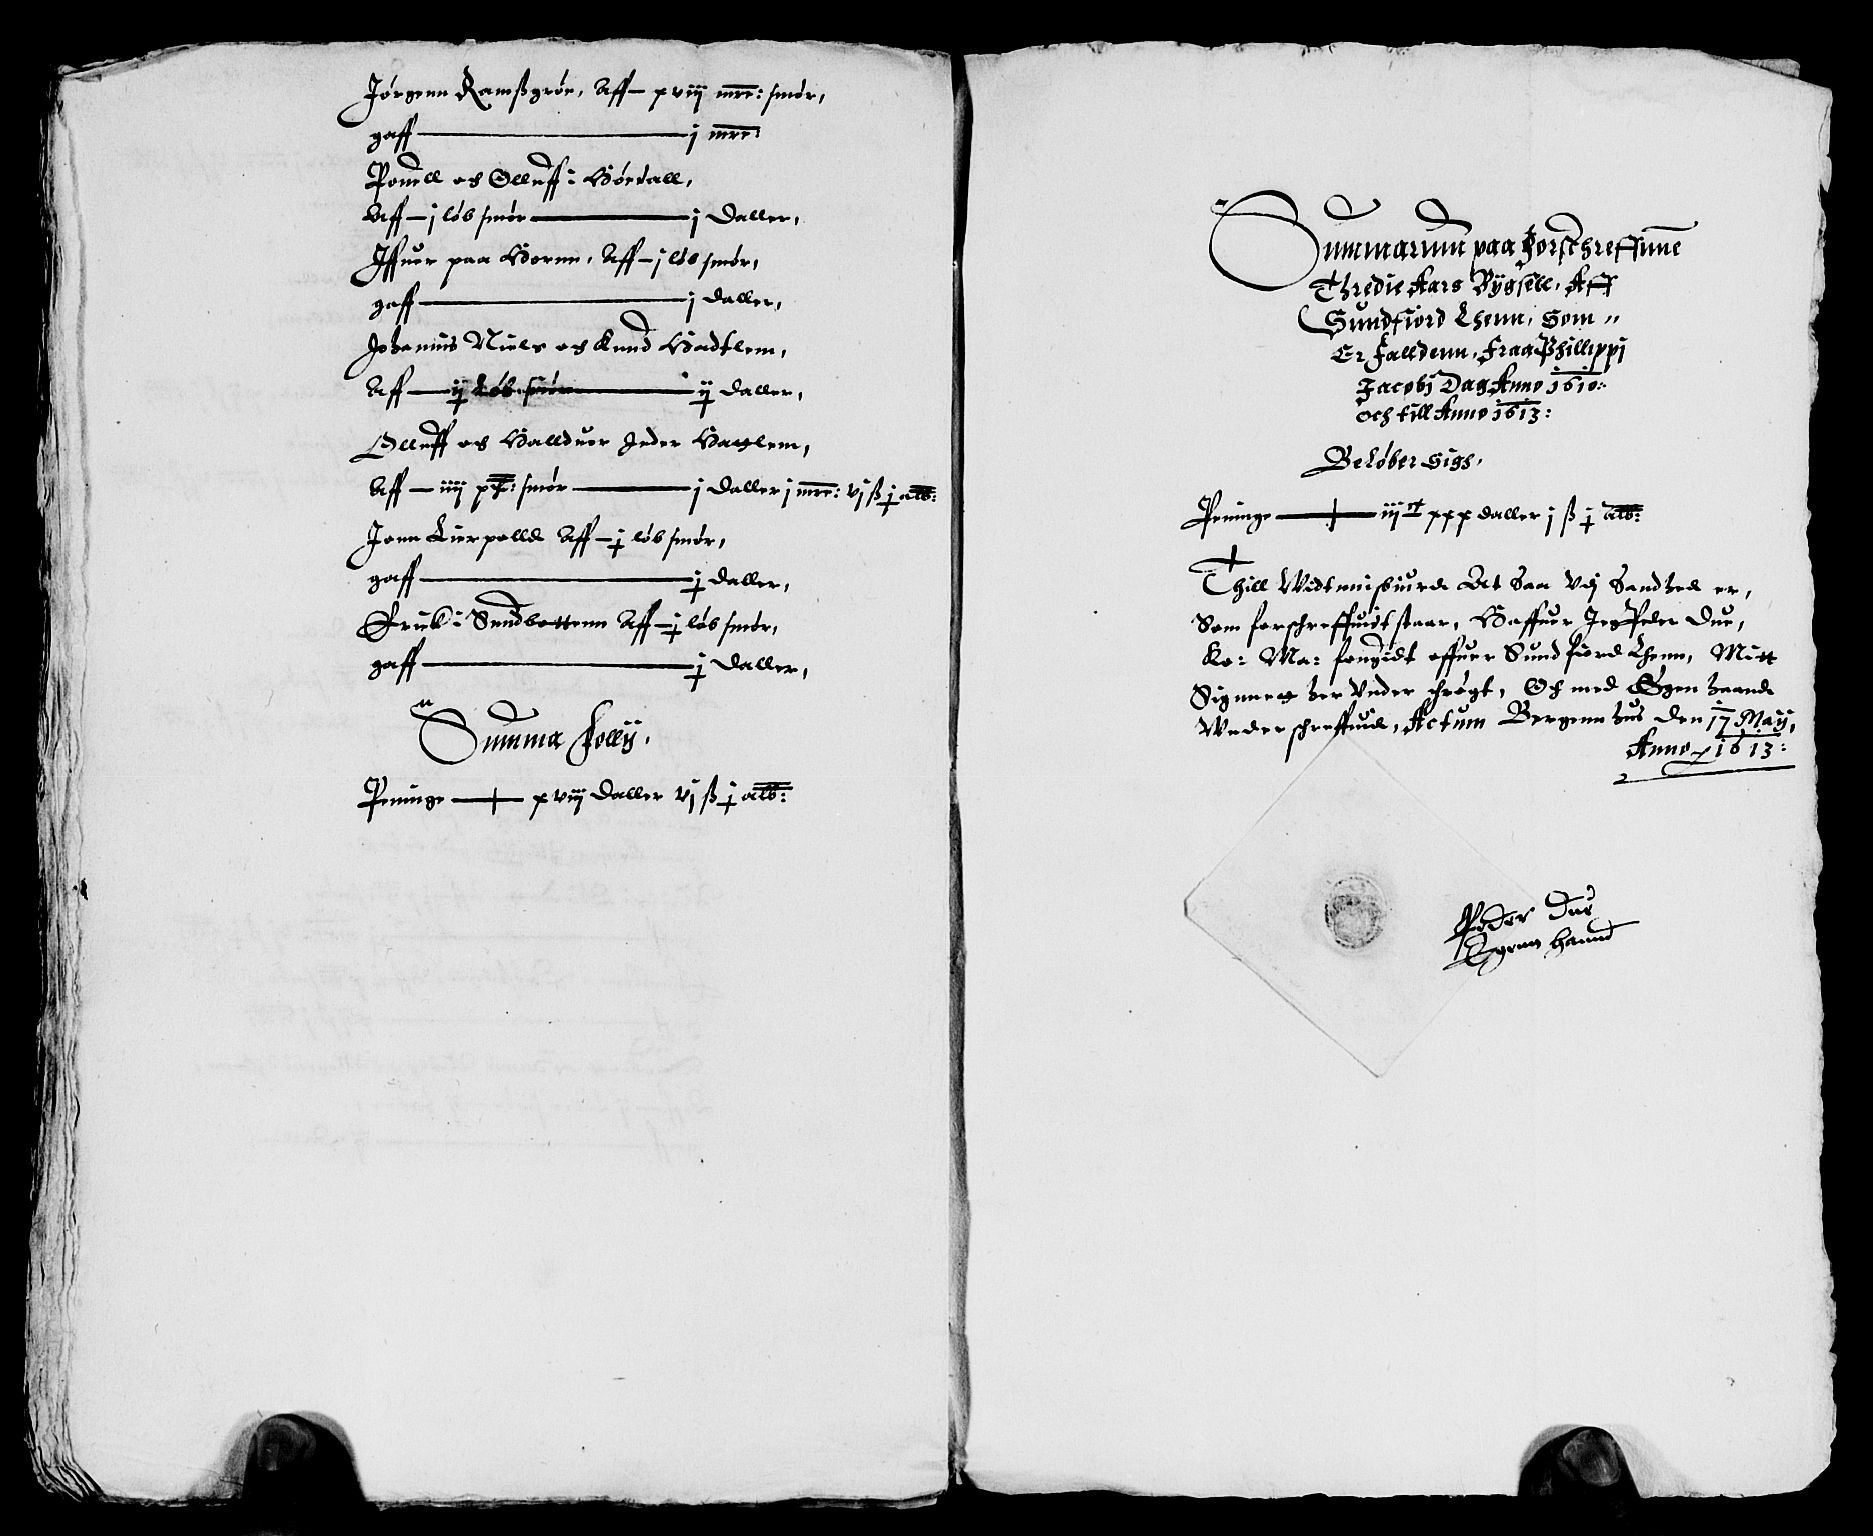 Jørgenn Ramßgrøe, Aff – xviij mrc: smør,
gaff ——— j mrc:
Pouell och Olluff i Hørdall,
Aff – j løb smør ——— j daller,
Iffuer paa Hornn, Aff – j løb smør,
gaff ——— j daller,
Johannis Niels och Knud Hadtlem,
Aff — ij løb smør ——— ij daller,
Olluff och Hallduor Inder Haglem,
Aff – iiij pd: smør ——— j daller j mrc: vj ß j alb:
Jonn Lierpolld Aff – j løb smør,
gaff ——— j daller,
Erick i Sundbottenn Aff – j løb smør,
gaff ——— j daller,
Summa Folly,
Peninge —— xviij daller vj ß j alb:
Summarum paa forschreffunne
Thredie Aars Bygsell, Aff
Sundfiord Lhenn, Som
Er falldenn, Fraa Phillippi
Jacobj Dag Anno 1610:
och till Anno 1613:
Beløber Sigh,
Peninge —— iijᶜ xxx daller j ß j alb:
Thill Widtnisbiurd At saa vdj Sandhed er,
Som forschreffuidt staar, Haffuer Jeg Peder Due,
Ko: Ma: fougidt offuer Sundfiord Lhenn, Mitt
Signnet her vnder thrøgt, Och med Egen haand
Vnderschreffuid, Actum Bergennhus den 17 Maij,
Anno 1613:
Peder Due
Egenn haand